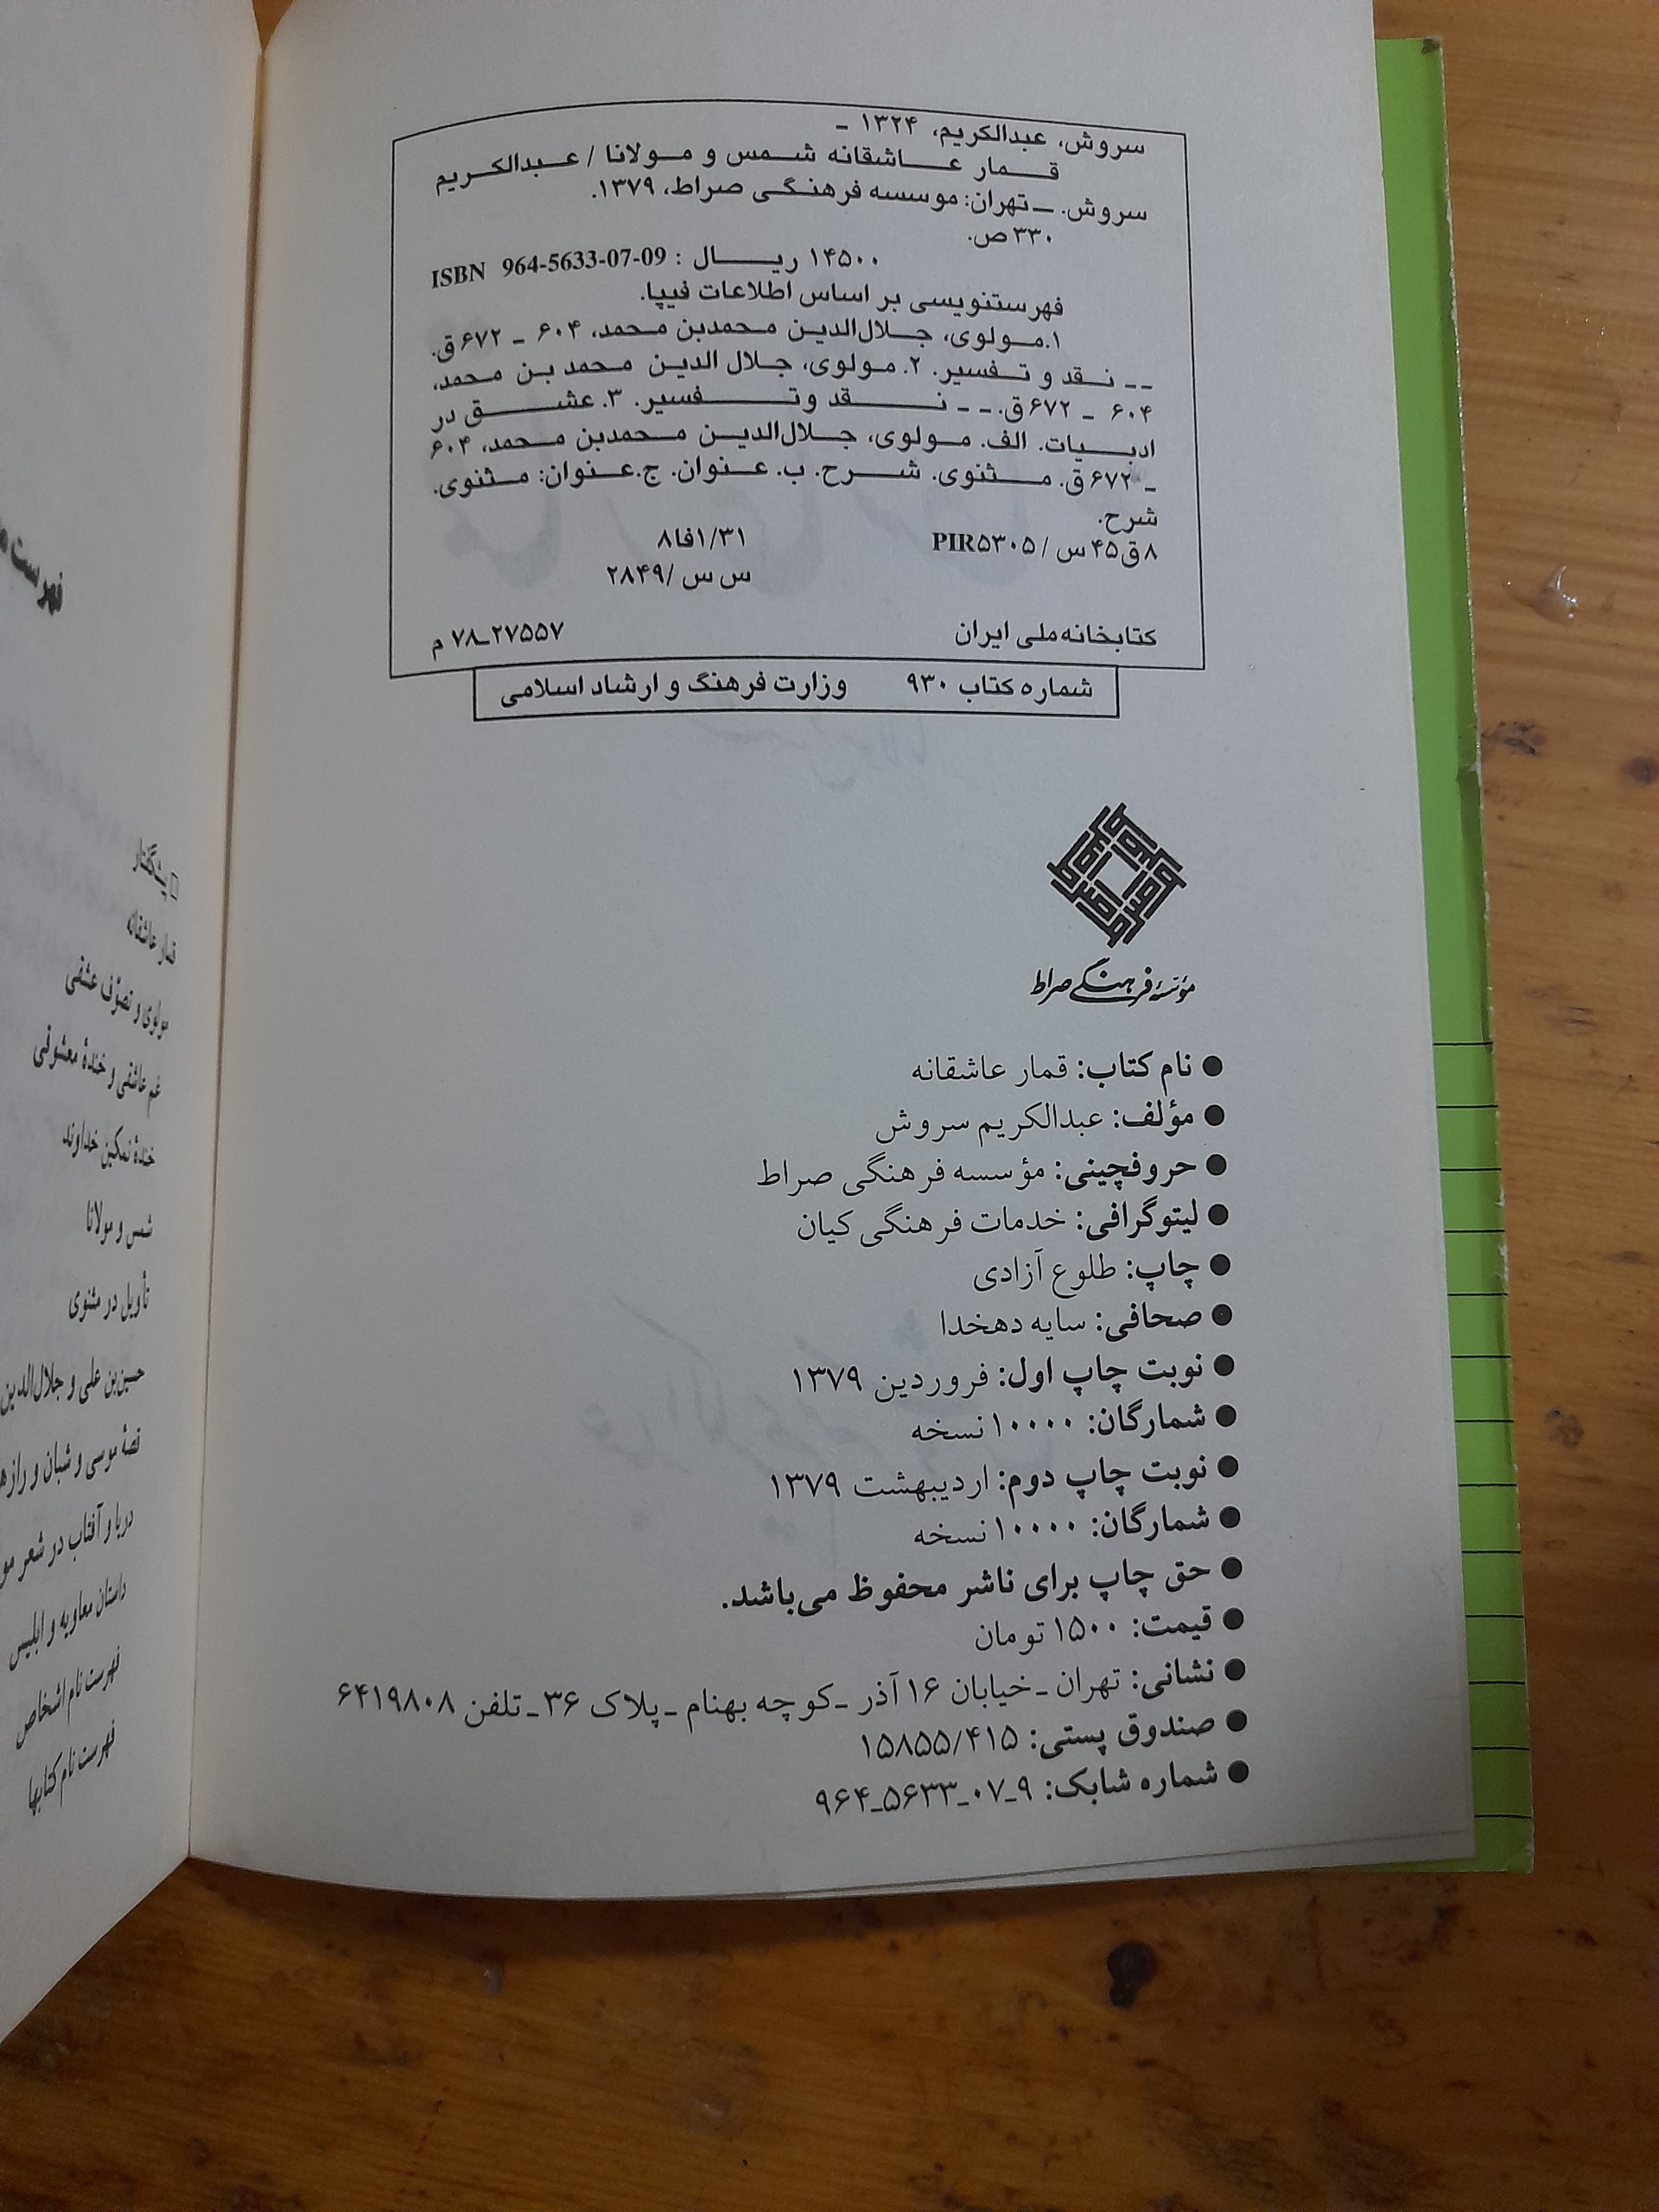 سروش، عبدالکریم، ۱۳۲۴ -
قمار عاشقانه شمس و مولانا / عبدالکریم
سروش. - تهران: موسسه فرهنگی صراط، ۱۳۷۹.
۳۳۰ ص.
ISBN 964-5633-07-09 : ۱۴۵۰۰ ریال
فهرستنویسی بر اساس اطلاعات فیپا.
۱. مولوی، جلال‌الدین محمدبن محمد، ۶۰۴ - ۶۷۲ ق.
-- نقد و تفسیر. ۲. مولوی، جلال الدین محمد بن محمد،
۶۰۴ - ۶۷۲ ق. -- نقد و تفسیر. ۳. عشق در
ادبیات. الف. مولوی، جلال‌الدین محمدبن محمد، ۶۰۴
- ۶۷۲ ق. مثنوی. شرح. ب. عنوان. ج. عنوان: مثنوی.
شرح.
۸ق۴۵س / PIR۵۳۰۵ ۸فا۱/۳۱
س س /۲۸۴۹
کتابخانه ملی ایران ۲۷۵۵۷-۷۸ م
شماره کتاب ۹۳۰ وزارت فرهنگ و ارشاد اسلامی
مؤسسهٔ فرهنگی صراط
● نام کتاب: قمار عاشقانه
● مؤلف: عبدالکریم سروش
● حروفچینی: مؤسسه فرهنگی صراط
● لیتوگرافی: خدمات فرهنگی کیان
● چاپ: طلوع آزادی
● صحافی: سایه دهخدا
● نوبت چاپ اول: فروردین ۱۳۷۹
● شمارگان: ۱۰۰۰۰ نسخه
● نوبت چاپ دوم: اردیبهشت ۱۳۷۹
● شمارگان: ۱۰۰۰۰ نسخه
● حق چاپ برای ناشر محفوظ می‌باشد.
● قیمت: ۱۵۰۰ تومان
● نشانی: تهران - خیابان ۱۶ آذر - کوچه بهنام - پلاک ۳۶ - تلفن ۶۴۱۹۸۰۸
● صندوق پستی: ۱۵۸۵۵/۴۱۵
● شماره شابک: ۹-۰۷-۵۶۳۳-۹۶۴
فهرست
□ پیشگفتار
قمار عاشقانه
مولوی و تصوّف عشقی
غم عاشقی و خندهٔ معشوقی
خندهٔ نمکین خداوند
شمس و مولانا
تأویل در مثنوی
حسین‌بن علی و جلال‌الدین
قصهٔ موسی و شبان و
دریا و آفتاب در شعر
داستان معاویه و ابلیس
فهرست نام اشخاص
فهرست نام کتابها